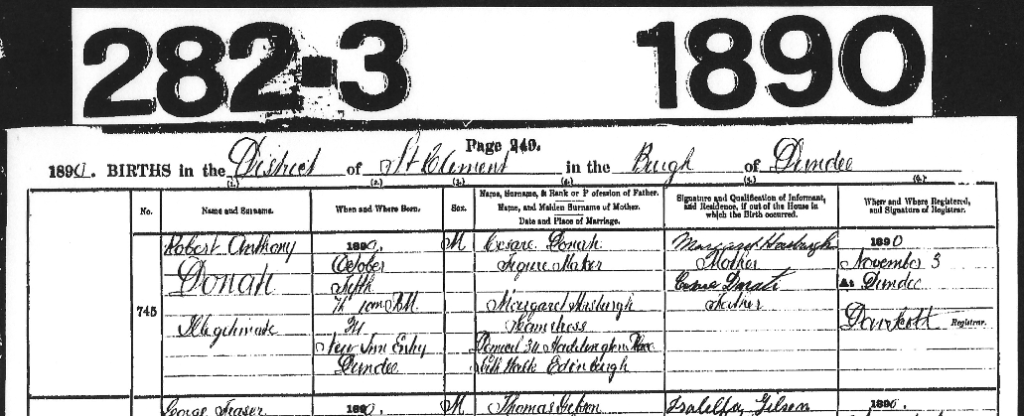 282-3 1890
Page 249.
1890. BIRTHS in the District of St Clement in the Burgh of Dundee
(1.) (2.) (3.) (4.) (5.) (6.)
No.
Name and Surname.
When and Where Born.
Sex.
Name, Surname, & Rank or Profession of Father.
Name, and Maiden Surname of Mother.
Date and Place of Marriage.
Signature and Qualification of Informant,
and Residence, if out of the House in
which the Birth occurred.
When and Where Registered,
and Signature of Registrar.
745
Robert Anthony
Donati
Illegitimate
1890,
October
Fifth
7h 10m P.M.
New Inn Entry
Dundee
M
Cesare Donati
Figure Maker
Margaret
Seamstress
Domicil 34 Haddington Place
Leith Walk Edinburgh
Margaret
Mother
Cesare Donati
Father
1890
November 3
At Dundee
Registrar.
George Fraser
1890,
M
Thomas Gibson
Isabella Gibson
1890.